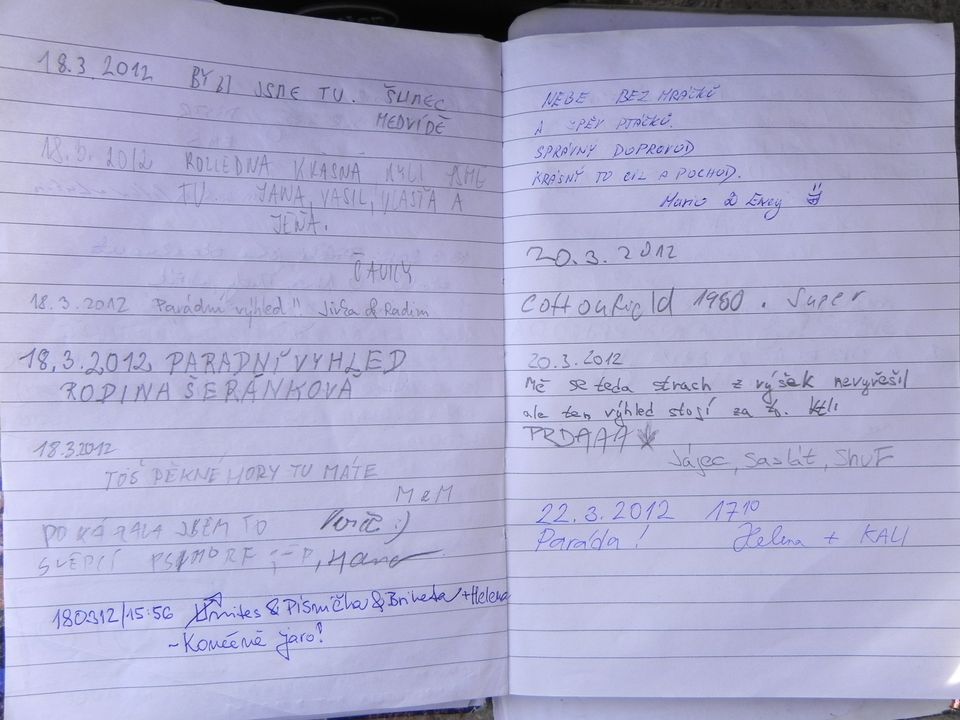 18.3.2012 BYLI JSME TU. ŠUMEC
MEDVÍDĚ
18.3.2012 ROZLEDNA KRÁSNÁ BYLI JSME
TU JANA, VASIL, VLASŤA A
JEŇA.
ČAUKY
18.3.2012 Parádní výhled" Jivka & Radim
18.3.2012 PARADNÍ VYHLED
RODINA ŠERÁNKOVÁ
18.3.2012
TOŠ PĚKNÉ HORY TU MÁTE
M & M
DOKÁZALA JSEM TO :)
180312/15:56 & Písnička & Briketa + Helena
- Konéčně jaro!
NEBE BEZ MRÁČKŮ
A ZPĚV PTÁČKŮ.
SPRÁVNÝ DOPROVOD
KRÁSNÝ TO CÍL A POCHOD.
20.3.2012
Cottonfield 1980. Super
20.3.2012
Mě se teda strach z výšek nevyřešil
ale ten výhled stojí za to.
PRDAAA
Jájec, Saslát, Shuf
22.3.2012 17¹⁰
Paráda! Helena + KALI